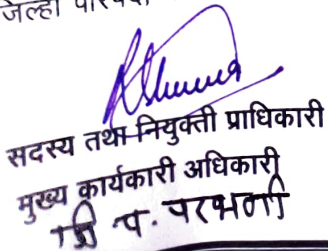 जिल्हा परिषद
सदस्य तथा नियुक्ती प्राधिकारी
मुख्य कार्यकारी अधिकारी
जि.प. परभणी